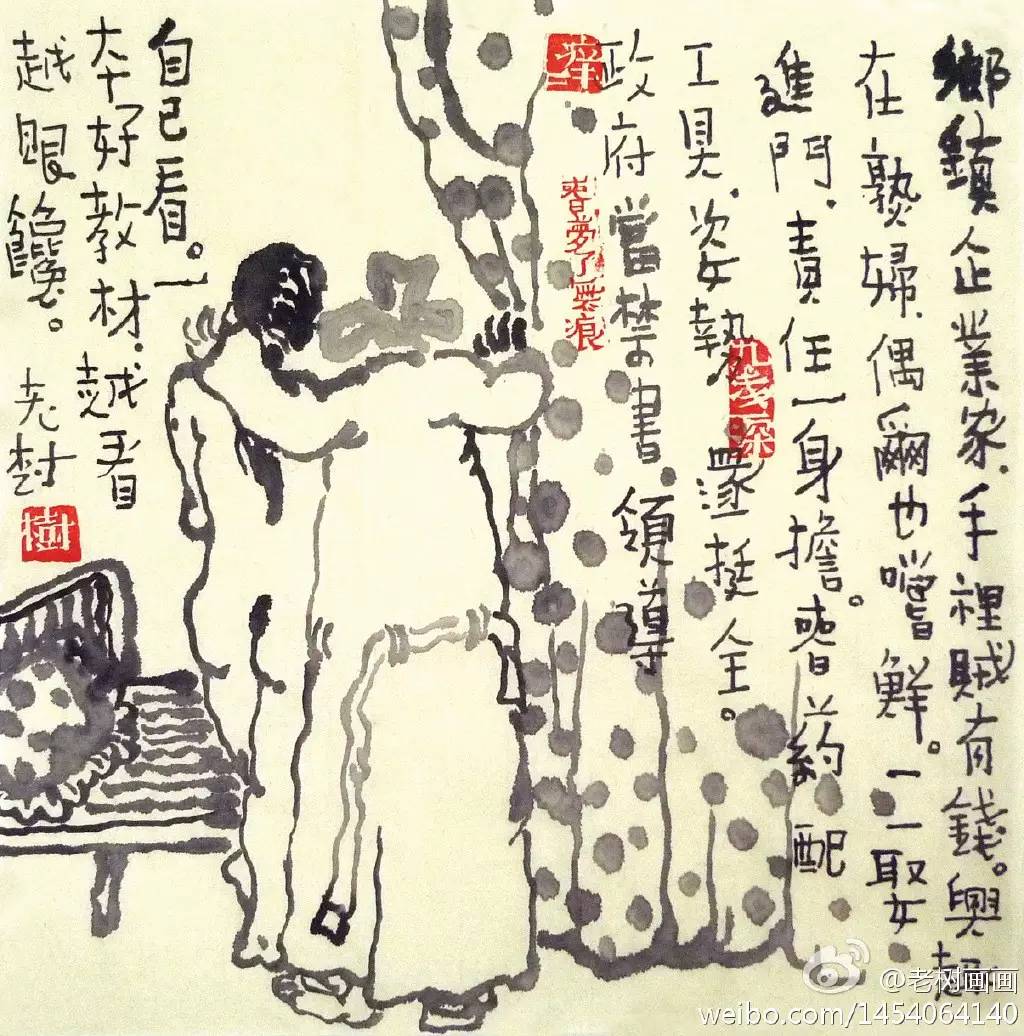 鄉鎮企業家.手裡賊有錢。興趣
在熟婦.偶爾也嚐鮮。一一娶
進門.責任一身擔。春葯配
工具.姿勢還挺全。
政府當禁書.領導
自己看。一
本好教材.越看
越眼饞。老树
樹
春夢了無痕
@老树画画
weibo.com/1454064140